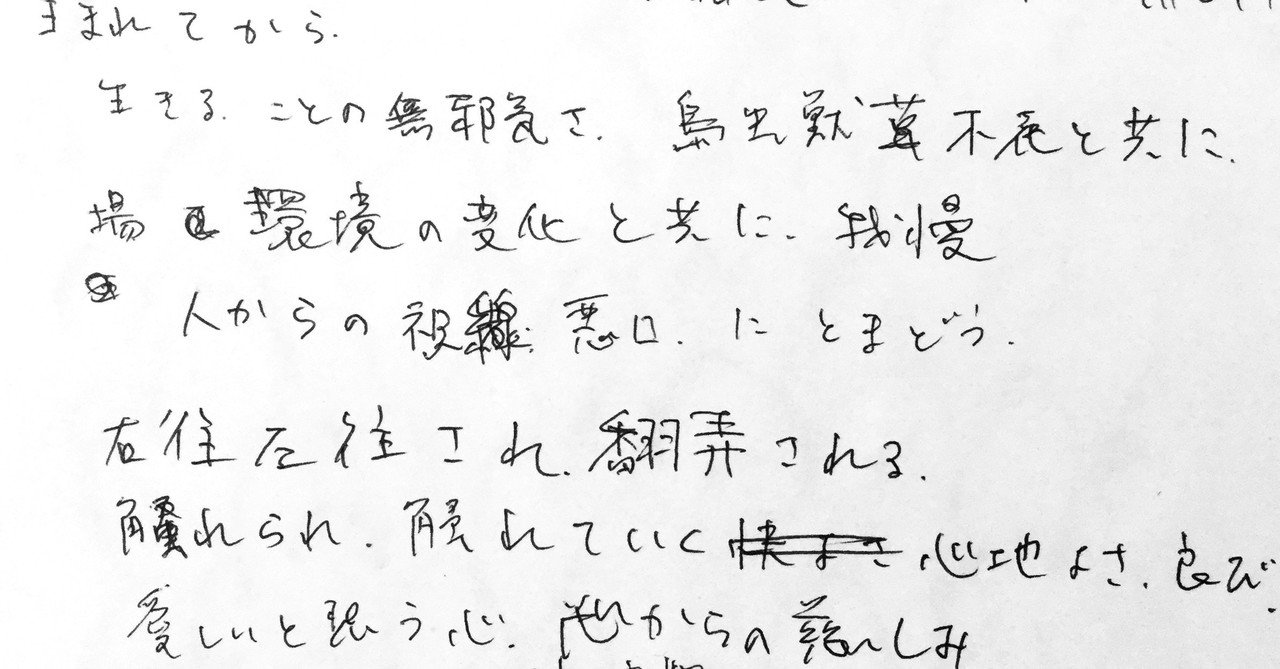 まれてから.
生きる ことの無邪気さ. 鳥虫獣草木花と共に.
場 環境の変化と共に. 我慢
人からの視線. 悪口. にとまどう.
右往左往され. 翻弄される.
触れられ. 触れていく 心地よさ.
愛しいと思う心. 心からの慈しみ